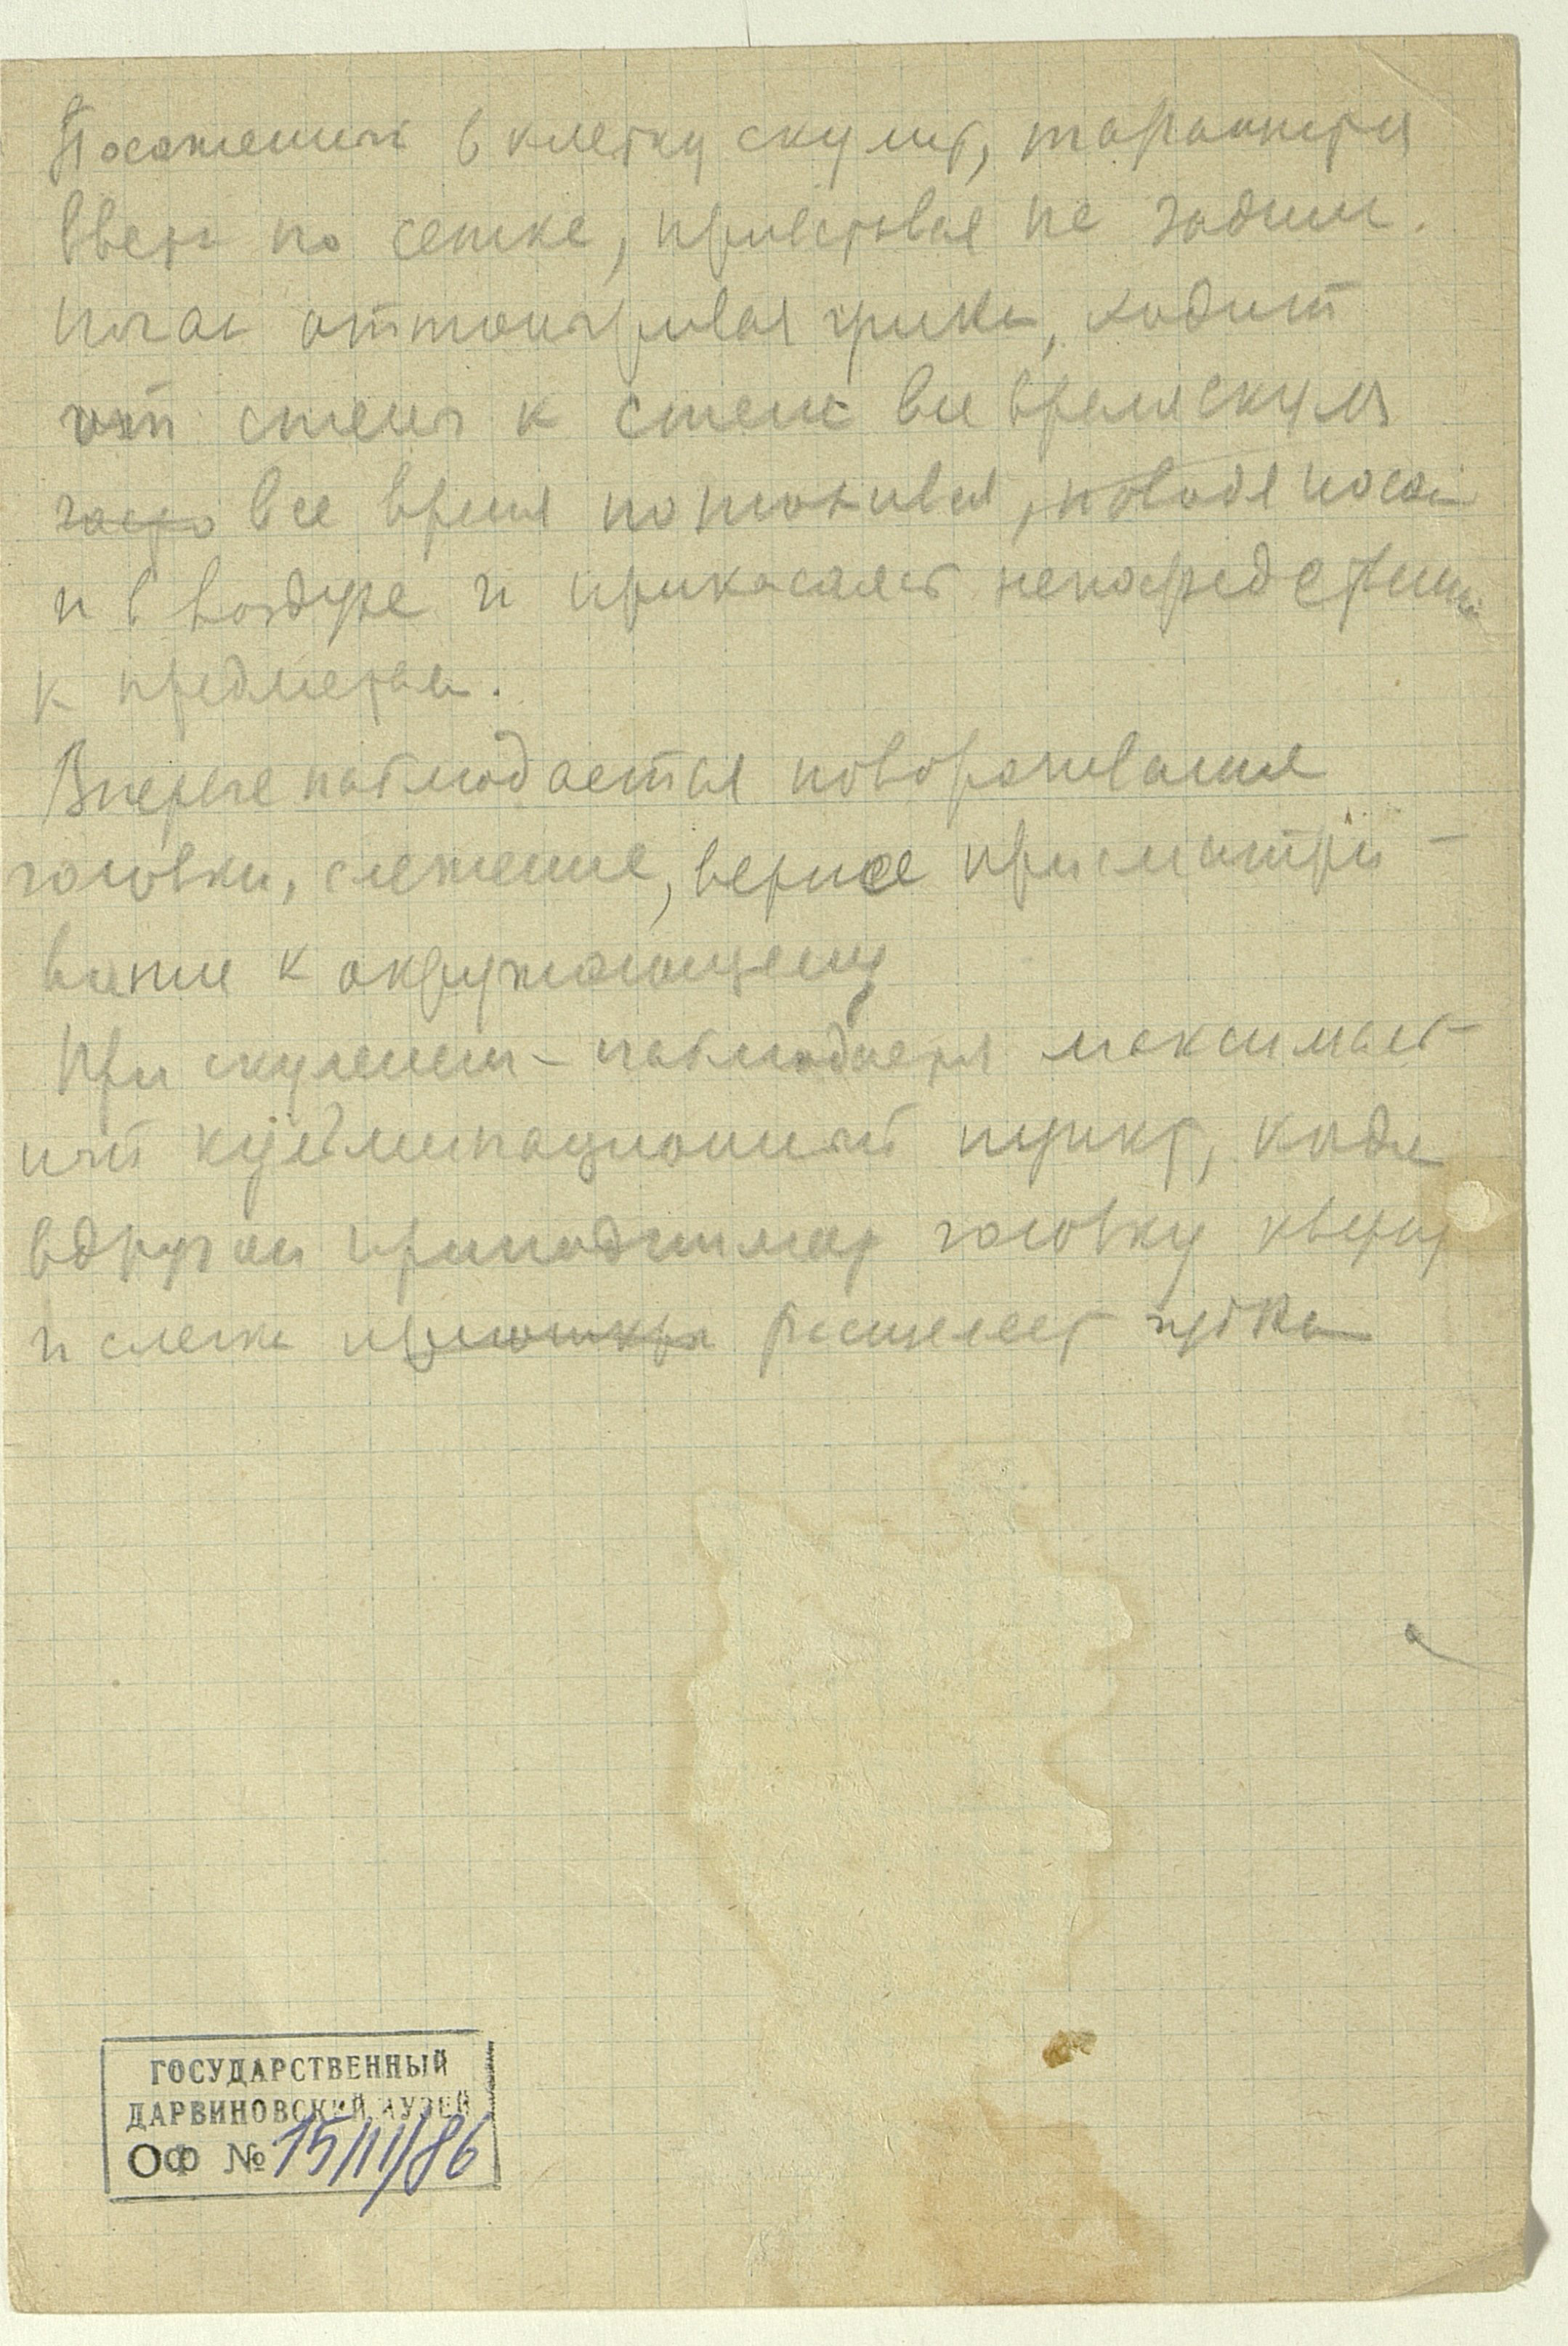 Посаженный в клетку скулит, торопится
вверх по сетке, привставая на задние.
от стены к стене все время скуля
часто все время потыкивая, поводя носом
и в воздухе и прикасаясь непосредственно
к предметам.
Впервые наблюдается поворачивание
головки, слежение, вернее присматри-
вание к окружающему
При скулении – наблюдается максималь-
ный кульминационный пункт, когда
вдруг он приподнимает головку кверху
и слегка приоткры расщеляет губки
ГОСУДАРСТВЕННЫЙ
ДАРВИНОВСКИЙ МУЗЕЙ
ОФ № 15111/86